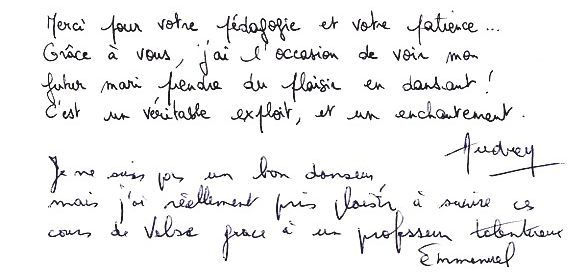 Merci pour votre pédagogie et votre patience...
Grâce à vous, j'ai l'occasion de voir mon
futur mari prendre du plaisir en dansant !
C'est un véritable exploit, et un enchantement.
Audrey
Je ne suis pas un bon danseur,
mais j'ai réellement pris plaisir à suivre ces
cours de Valse grace à un professeur talentueux
Emmanuel